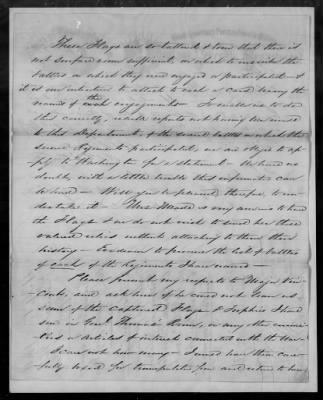 These Flags are so tattered & torn that there is
not surface room sufficient, on which to inscribe the
battles in which they were engaged or participated &
it is our intention to attach to each a card bearing the
names of each engagement — To enable us to do
this correctly, reports not having been made
to this Department, of the several battles in which the
several Regiments participated, we are obliged to ap-
ply to Washington for a statement — We have no
doubt, with a little trouble this information can
be had — Will you be pleased, therefore, to un-
dertake it — Mrs is very anxious to have
the Flags & we do not wish to send her these
valued relics without attaching to them their
history — Endeavor to procure the list of battles
of each of the Regiments I have named —
Please present my respects to Major Vin-
cent, and ask him if he could not loan us
some of the captured Flags & trophies I have
seen in Genl Rooms, or any other curiosi-
ties or articles of interest connected with the War
I care not how many — I would have them care-
fully boxed for transportation from and return to him